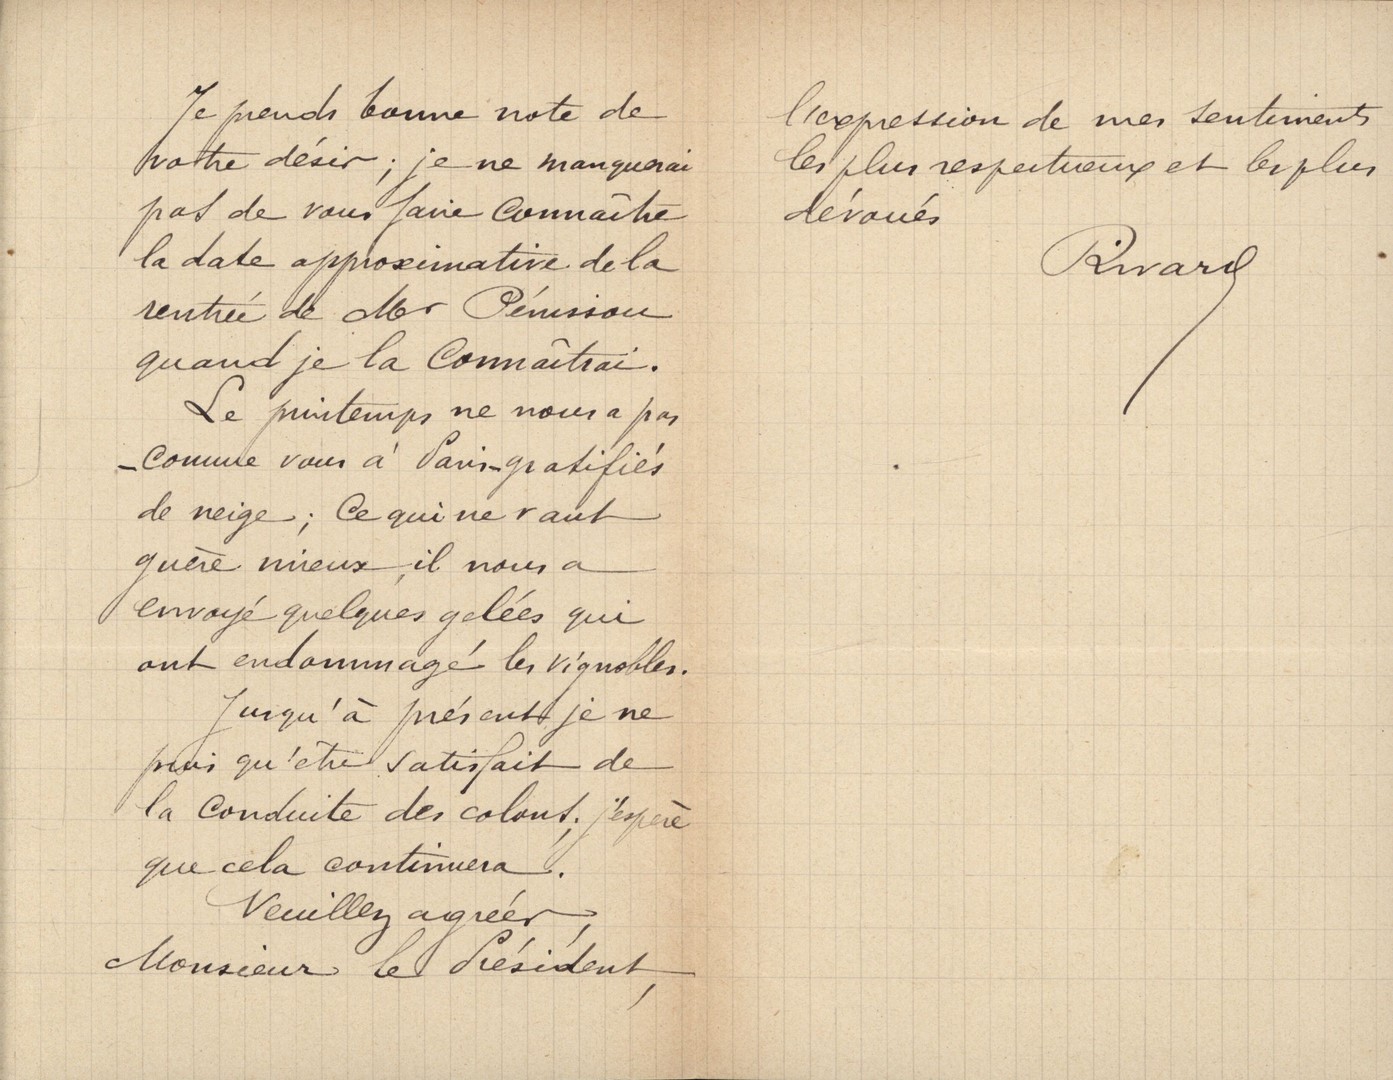 Je prends bonne note de
votre désir ; je ne manquerai
pas de vous faire connaître
la date approximative de la
rentrée de Mr Pénissou
quand je la connaîtrai.
Le printemps ne nous a pas
- comme vous à Paris - gratifiés
de neige ; ce qui ne vaut
guère mieux, il nous a
envoyé quelques gelées qui
ont endommagé les vignobles.
Jusqu'à présent je ne
puis qu'être satisfait de
la conduite des colons ; j'espère
que cela continuera.
Veuillez agréer,
Monsieur le Président,
l'expression de mes sentiments
les plus respectueux et les plus
dévoués
Rivard